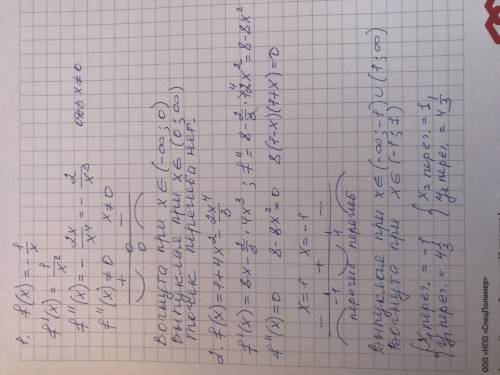 1. f(x) = -1/x
f'(x) = 1/x²
f''(x) = -2x/x⁴ = -2/x³     x≠0
f''(x) ≠ 0     x≠0
+     0     -
Вогнута при x∈(-∞; 0)
Выпуклая при x∈(0; ∞)
Точек перегиба нет.
2. f(x) = 1+4x² - 2x⁴/3
f'(x) = 8x - 2/3 · 4x³ ; f'' = 8 - 2/3 · 12x² = 8-8x²
f''(x)=0     8-8x²=0     8(1-x)(1+x)=0
x=1     x=-1
-     -1     +     1     -
перегиб     перегиб
Выпуклая при x∈(-∞;-1)∪(1;∞)
Вогнута при x∈(-1;1)
{x₁ перег. = -1     {x₂ перег. = 1
y₁ перег. = 4 1/3     y₂ перег. = 4 1/3
ООО «НПО «СпецПолимер»